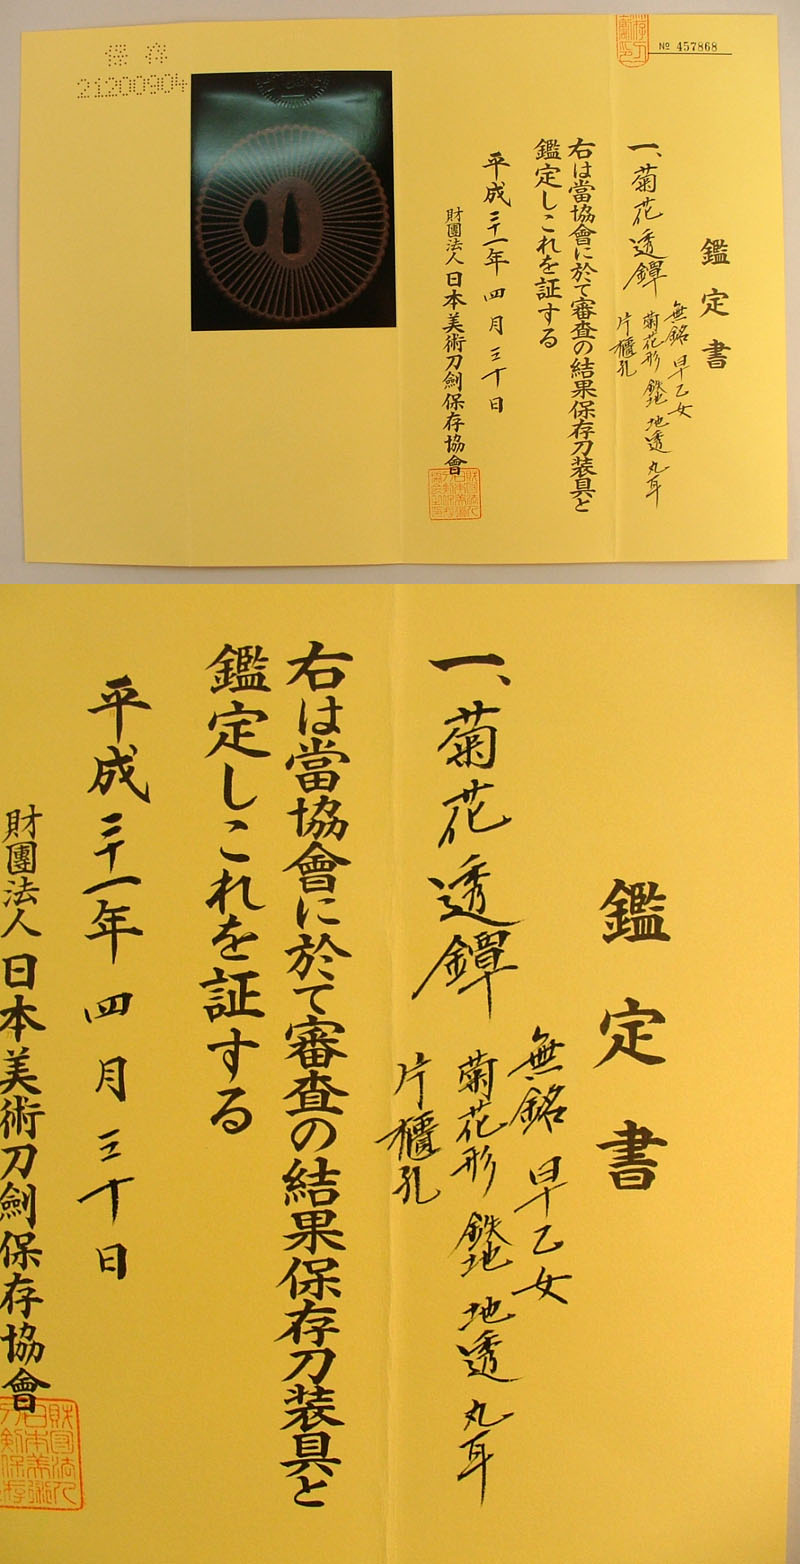 № 457868
鑑定書
一、菊花透鐔
無銘 早乙女
菊花形 鉄地 地透 丸耳
片櫃孔
右は當協會に於て審査の結果保存刀装具と
鑑定しこれを証する
平成二十一年 四月三十日
財團法人 日本美術刀劍保存協會
保存
21200904
鑑定書
一、菊花透鐔
無銘 早乙女
菊花形 鉄地 地透 丸耳
片櫃孔
右は當協會に於て審査の結果保存刀装具と
鑑定しこれを証する
平成二十一年 四月三十日
財團法人 日本美術刀劍保存協會